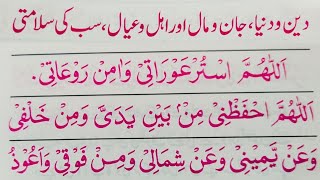 دین و دنیا، جان و مال اور اہل و عیال، سب کی سلامتی
اَللّٰهُمَّ اسْتُرْعَوْرَاتِیْ وَاٰمِنْ رَوْعَاتِیْ.
اَللّٰهُمَّ احْفَظْنِیْ مِنْۢ بَیْنِ یَدَیَّ وَمِنْ خَلْفِیْ
وَعَنْ یَّمِیْنِیْ وَعَنْ شِمَالِیْ وَمِنْ فَوْقِیْ وَاَعُوْذُ